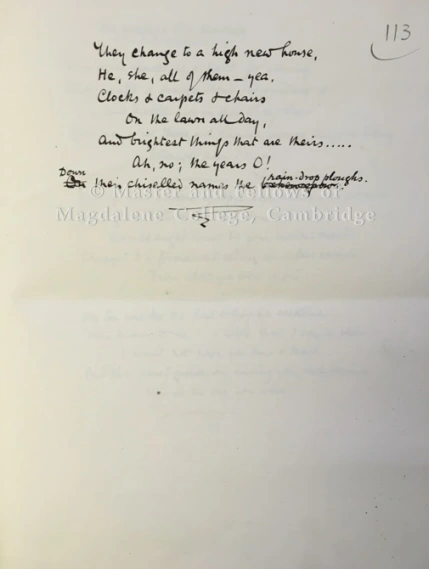 113
They change to a high new house,
He, she, all of them — yea,
Clocks & carpets & chairs
On the lawn all day,
And brightest things that are theirs.....
Ah, no; the years O!
Down their chiselled names the rain-drop ploughs.
© Master and Fellows of
Magdalene College, Cambridge